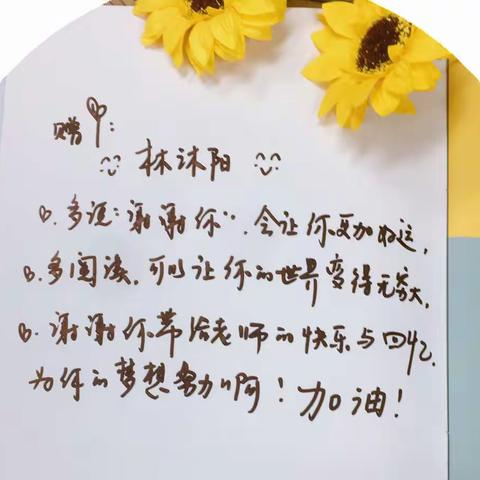 赠:
林沐阳
多说:“谢谢你”,会让你更加好运,
多阅读,可以让你的世界变得无穷大,
谢谢你带给老师的快乐与回忆,
为你的梦想努力啊!加油!